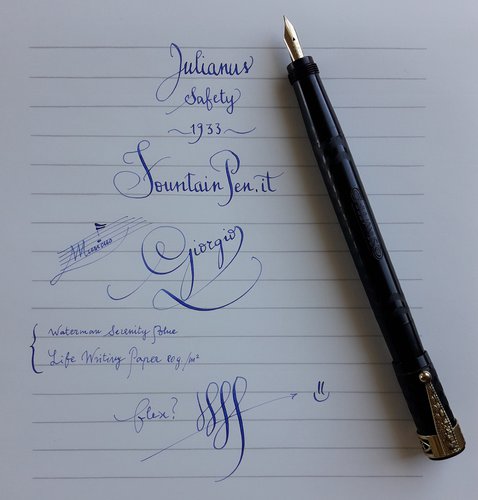 Julianus
Safety
~1933~
FountainPen.it
Giorgio
Waterman Serenity Blue
Life Writing Paper 80g/m²
flex?